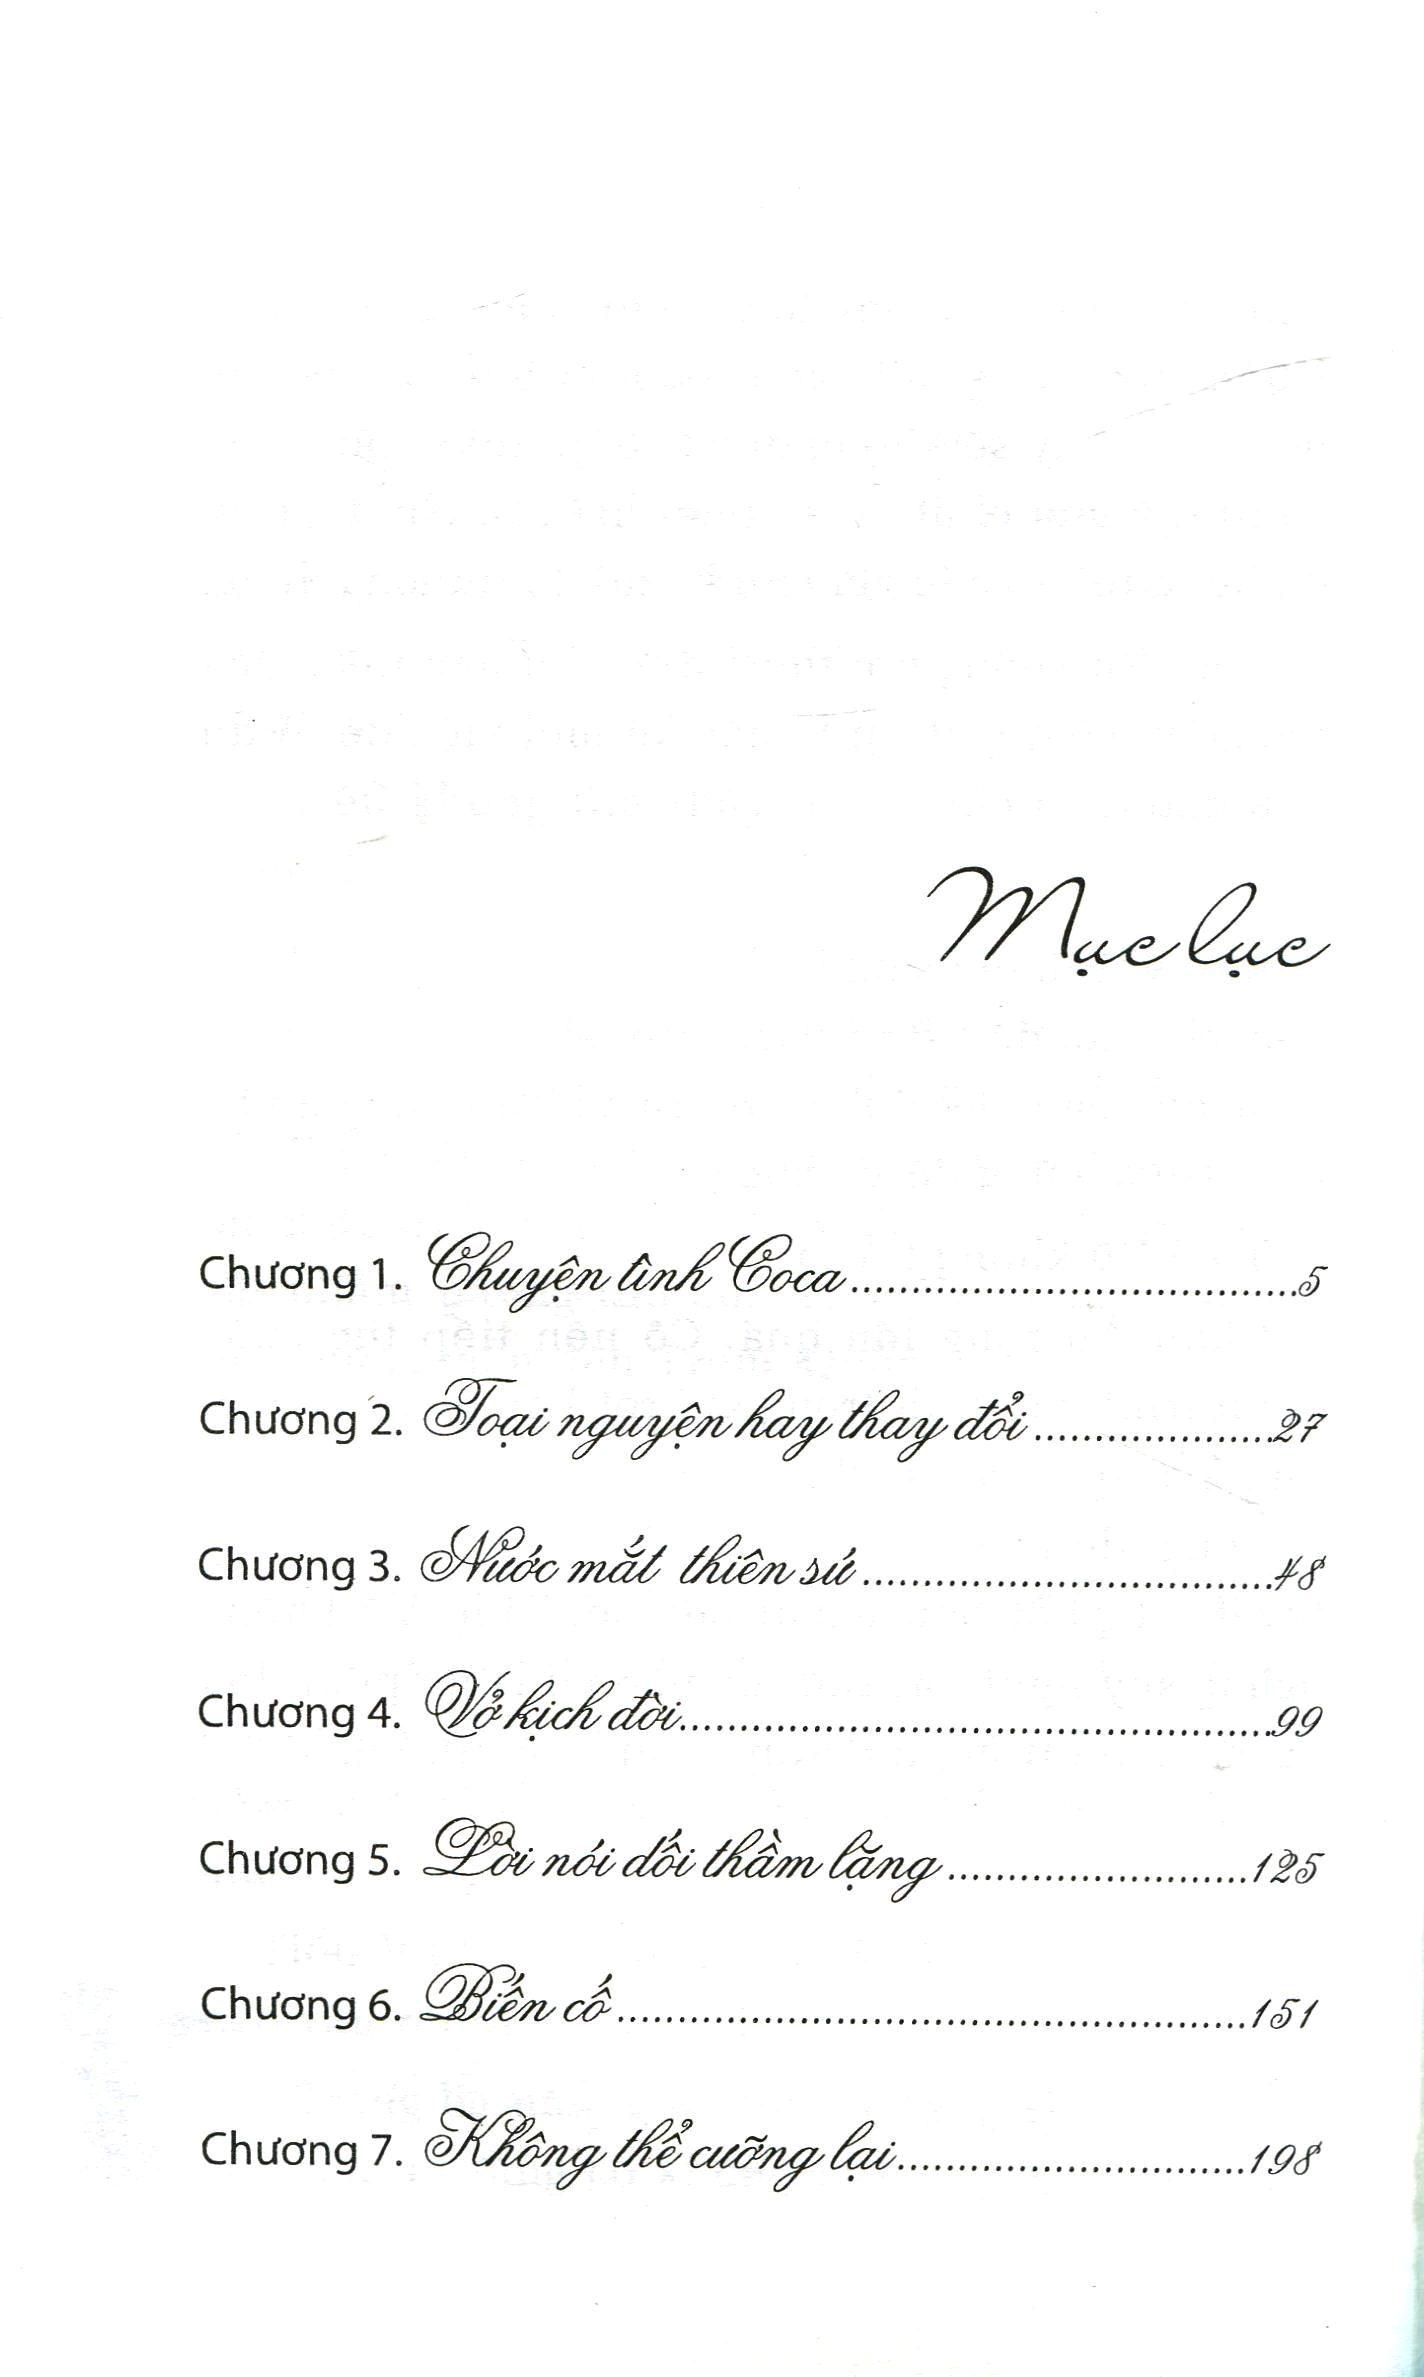 Mục lục
Chương 1. Chuyện tình Coca....................................5
Chương 2. Toại nguyện hay thay đổi....................27
Chương 3. Nước mắt thiên sứ..................................48
Chương 4. Vở kịch đời................................................99
Chương 5. Lời nói dối thầm lặng.........................125
Chương 6. Biến cố...................................................151
Chương 7. Không thể cưỡng lại.............................198